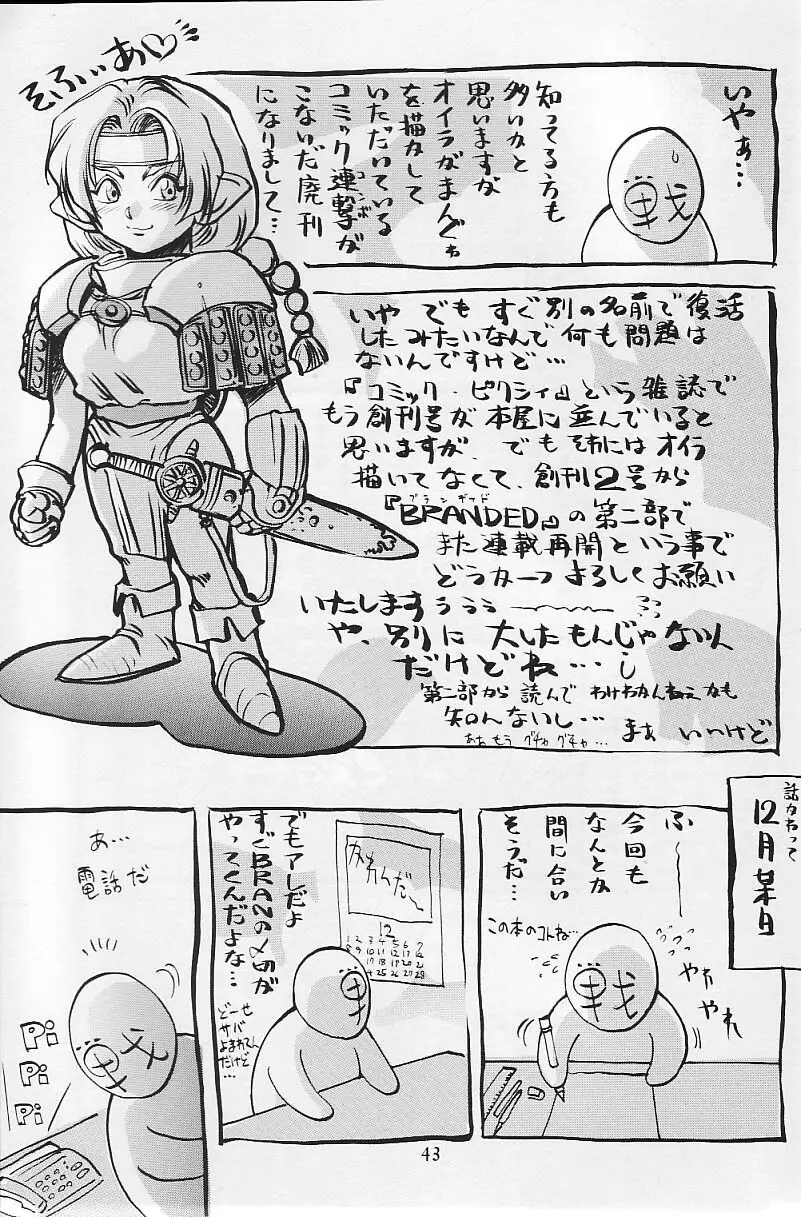 そふぃあ♡
いやぁ…
知ってる方も
多いかと
思いますが
オイラがまんぐわ
を描かして
いただいている
コミック連撃が
コンボ
こないだ廃刊
になりまして…
戦
いや でも すぐ別の名前で復活
したみたいなんで何も問題は
ないんですけど…
『コミック・ピクシィ』という雑誌で
もう創刊号が本屋に並んでいると
思いますが、でもそれにはオイラ
描いてなくて、創刊2号から
『BRANDED』の第二部で
また連載再開という事で
どうか一つよろしくお願い
いたしますぅぅぅ
や、別に大したもんじゃないん
だけどね…
第二部から読んでわけわかんねぇかも
知んないし…
まぁ いいけど
ああもう グチャグチャ…
話かわって
12月某日
ふ〜
今回も
なんとか
間に合い
そうだ…
この本のコトね…
やれ
やれ
戦
でもアレだよ
すぐBRANの〆切が
やってくんだよな…
12
1 2 3 4 5 6 7
どーせ
サバ
よまれてん
だけど
…
戦
あ…
電話だ
Pi
Pi
Pi
戦
43